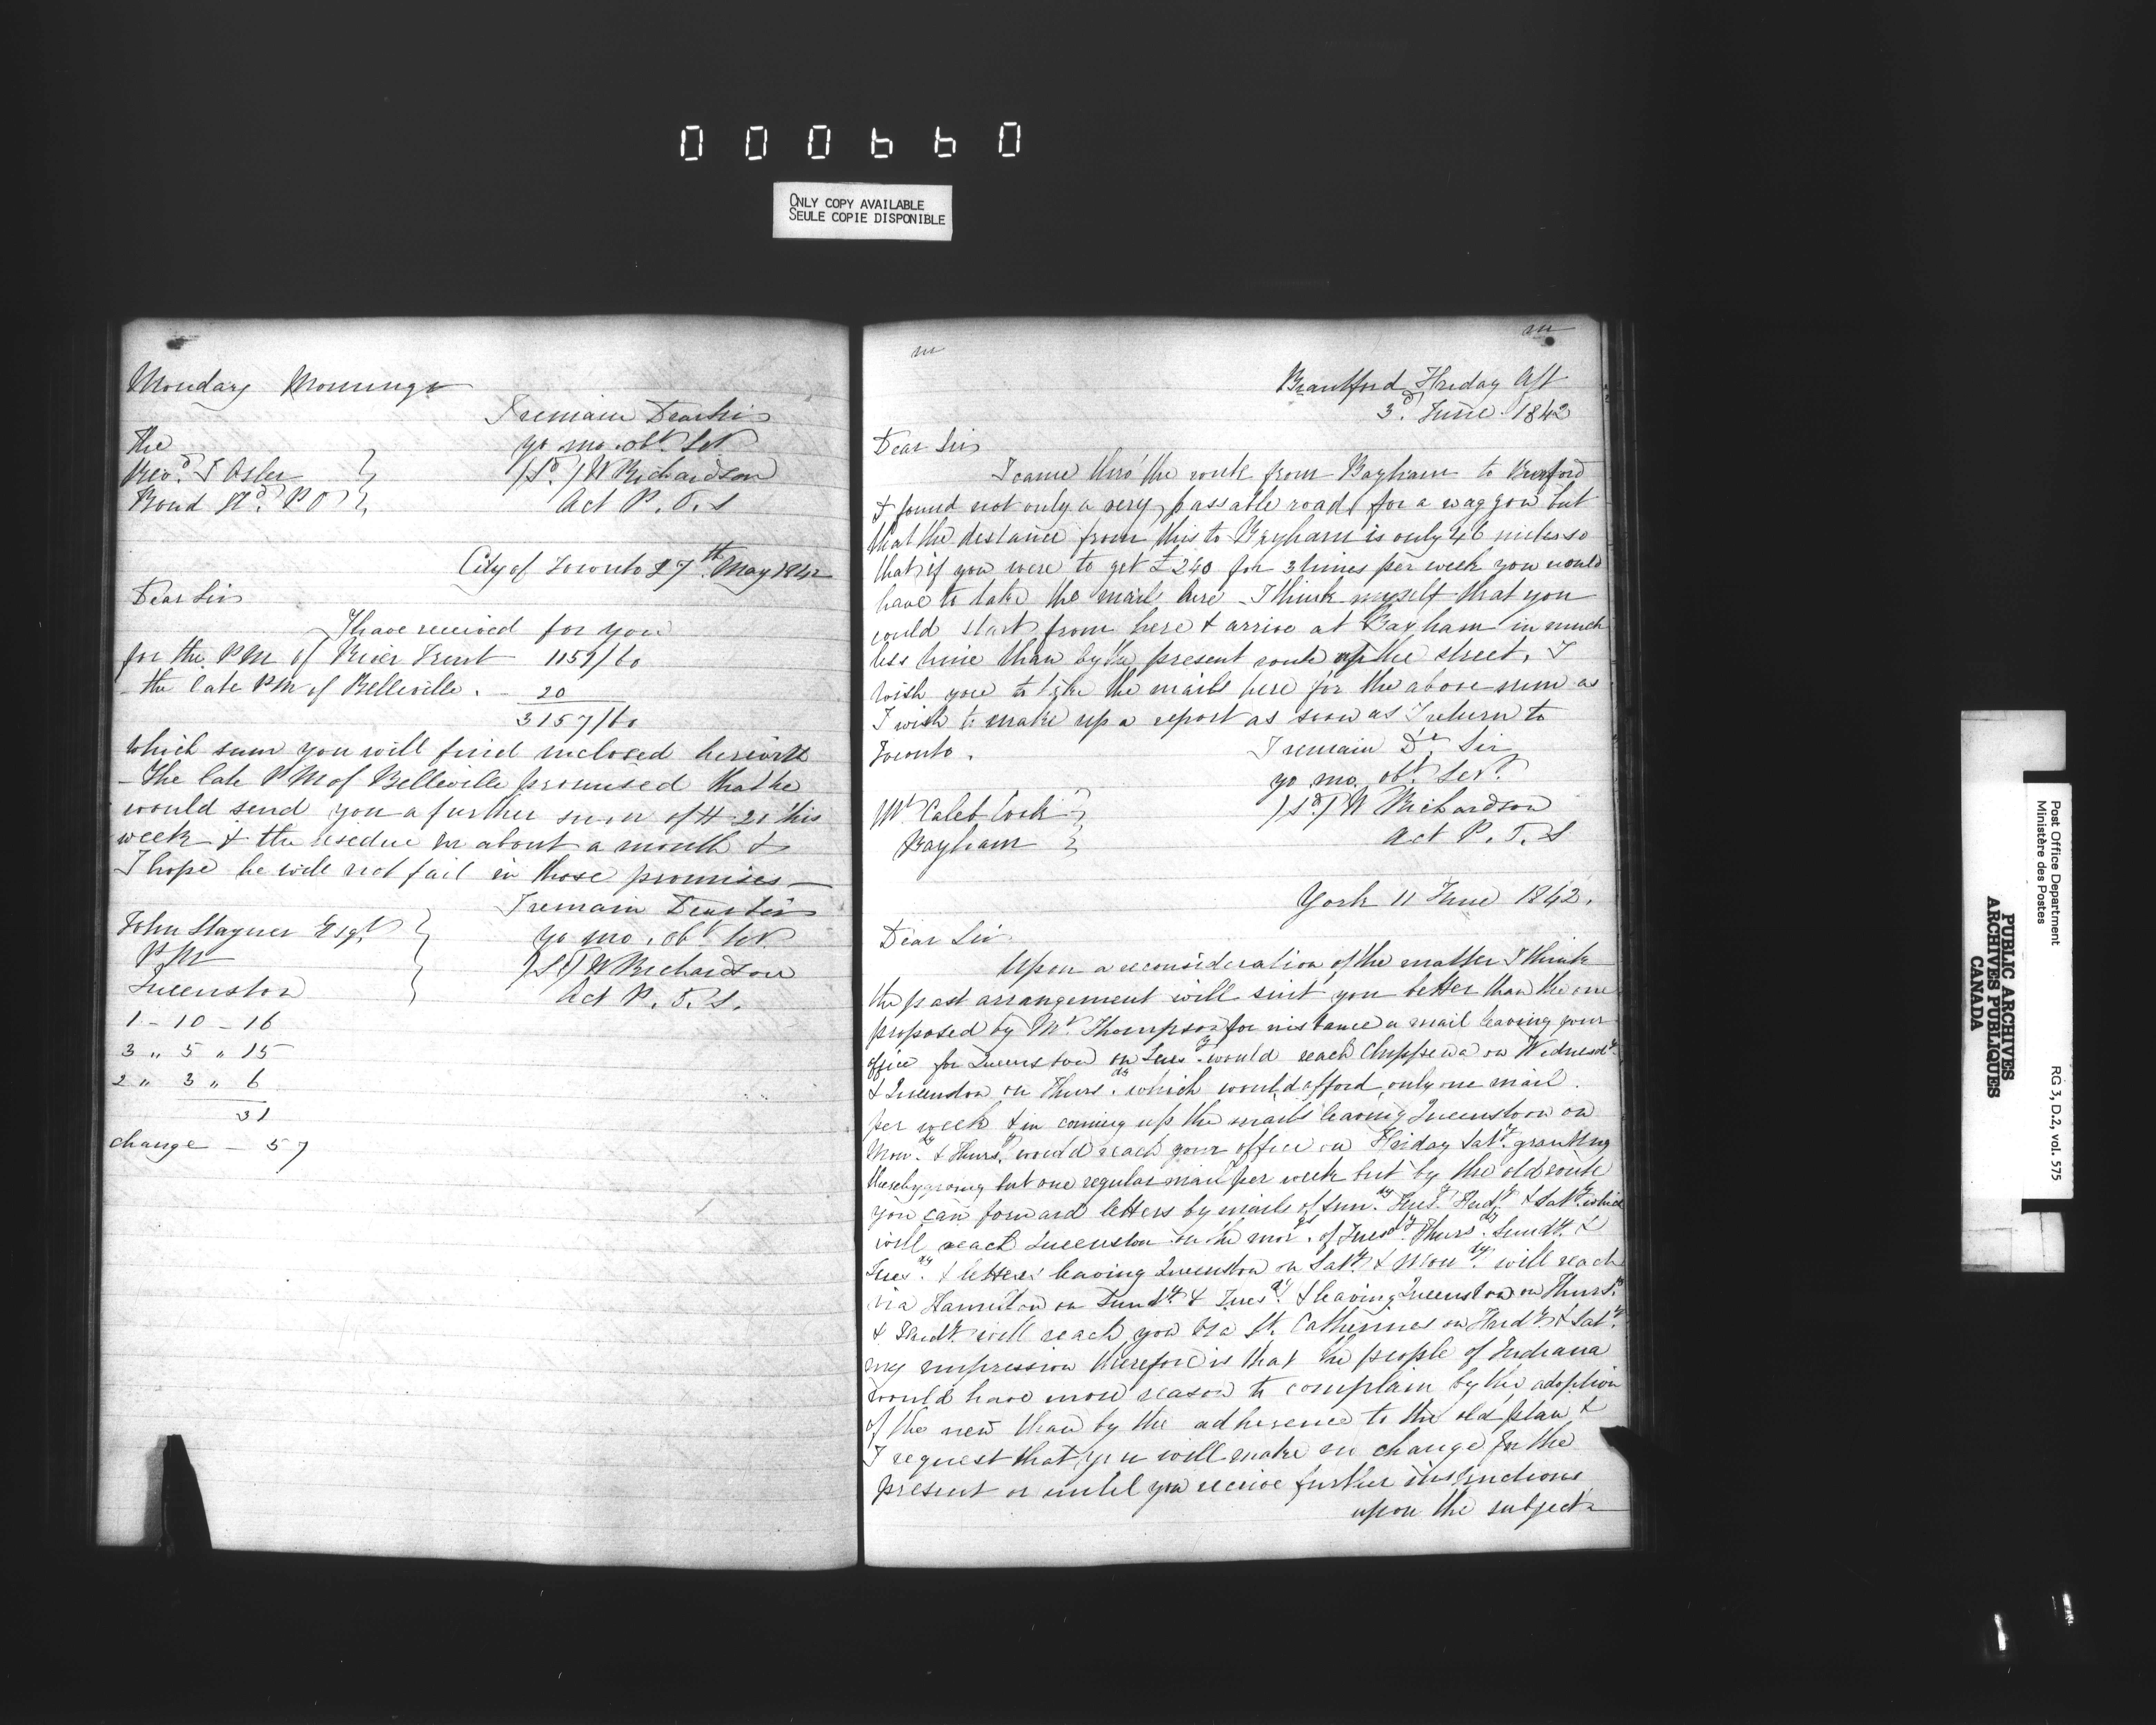 000660
ONLY COPY AVAILABLE
SEULE COPIE DISPONIBLE
Monday Mornings
I remain Dear Sir
The
yo mo. obt Svt
Revd F Osler
(Sd) W Richardson
Bond Hd P O
Act P. O. S
City of Toronto 27th May 1842
Dear Sir
I have received for you
for the PM of River Trent 11 57/60
- the late PM of Belleville. - 20
31 57/60
which sum you will find inclosed herewith
- The late PM of Belleville promised that he
would send you a further sum of # 20 this
week & the residue in about a month &
I hope he will not fail in those promises —
I remain Dear Sir
John Stayner Esqr
yo mo. obt Svt
PM
(Sd) W Richardson
Queenston
Act P. O. S.
1 - 10 - 16
3 " 5 " 15
2 " 3 " 6
31
change - 57
Brantford Friday Aft
3d June 1842
Dear Sir
I came thro' the route from Bayham to Burford
& found not only a very passable road for a waggon but
that the distance from this to Bayham is only 46 miles so
that if you were to get £240 for 3 times per week you would
have to take the mail here - I think myself that you
could start from here & arrive at Bayham in much
less time than by the present route up the street, I
wish you to take the mails here for the above sum as
I wish to make up a report as soon as I return to
Toronto.
I remain Dr Sir
yo mo. obt Svt.
Mr Caleb Cook
(Sd) W Richardson
Bayham
Act P. O. S
York 11 June 1842.
Dear Sir
Upon a reconsideration of the matter I think
the past arrangement will suit you better than the one
proposed by Mr Thompson for instance a mail leaving your
office for Queenston on Tuesdy would reach Chippewa on Wednesdy
& Queenston on Thursdy which would afford only one mail
per week & in coming up the mails leaving Queenston on
Mondy & Thursdy would reach your office on Friday Satdy granting
thereby giving but one regular mail per week but by the old route
you can forward letters by mails of Sundy Tuesdy Fridy & Satdy which
will reach Queenston on the morgs of Tuesdy Thursdy Sundy &
Tuesdy & letters leaving Queenston on Satdy & Mondy will reach
via Hamilton on Sundy & Tuesdy & leaving Queenston on Thursdy
& Fridy will reach you via St. Catherines on Fridy & Satdy
my impression therefore is that the people of Indiana
would have more reason to complain by the adoption
of the new than by the adherence to the old plan &
I request that you will make no change for the
present or until you receive further instructions
upon the subject
Post Office Department
Ministère des Postes
RG 3, D.2, vol. 575
PUBLIC ARCHIVES
ARCHIVES PUBLIQUES
CANADA